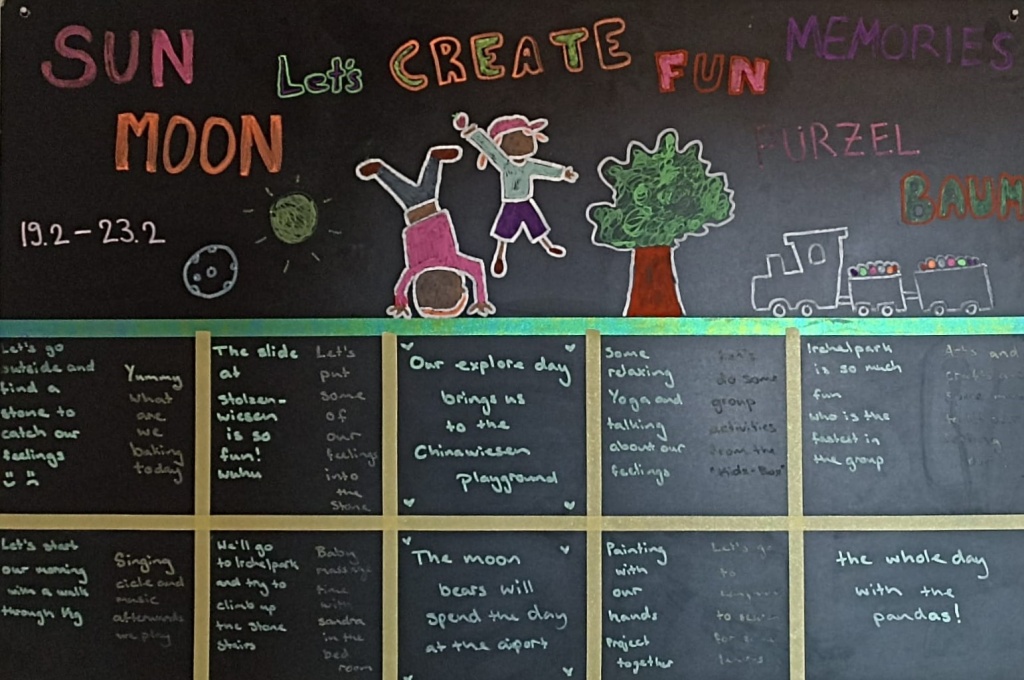 SUN
MOON
Let's CREATE FUN MEMORIES
PURZEL
BAUM
19.2 – 23.2
Let's go
outside and
find a
stone to
catch our
feelings
Yummy
what
are
we
baking
today
The slide
at
stolzen-
wiesen
is so
fun!
wuhu
Let's
put
some
of
our
feelings
into
the
stone
Our explore day
brings us
to the
Chinawiesen
playground
Some
relaxing
Yoga and
talking
about our
feelings
Let's
do some
group
activities
from the
"Kids-Box"
Irchelpark
is so much
fun
who is the
fastest in
the group
Arts and
Let's start
our morning
with a walk
through
Singing
cicle and
music
afterwards
we play
We'll go
to Irchelpark
and try to
climb up
the stone
stairs
Baby
massage
time
with
sandra
in the
bed
room
The moon
bears will
spend the day
at the aiport
Painting
with
our
hands
project
together
Let's go
to
the whole day
with the
pandas!